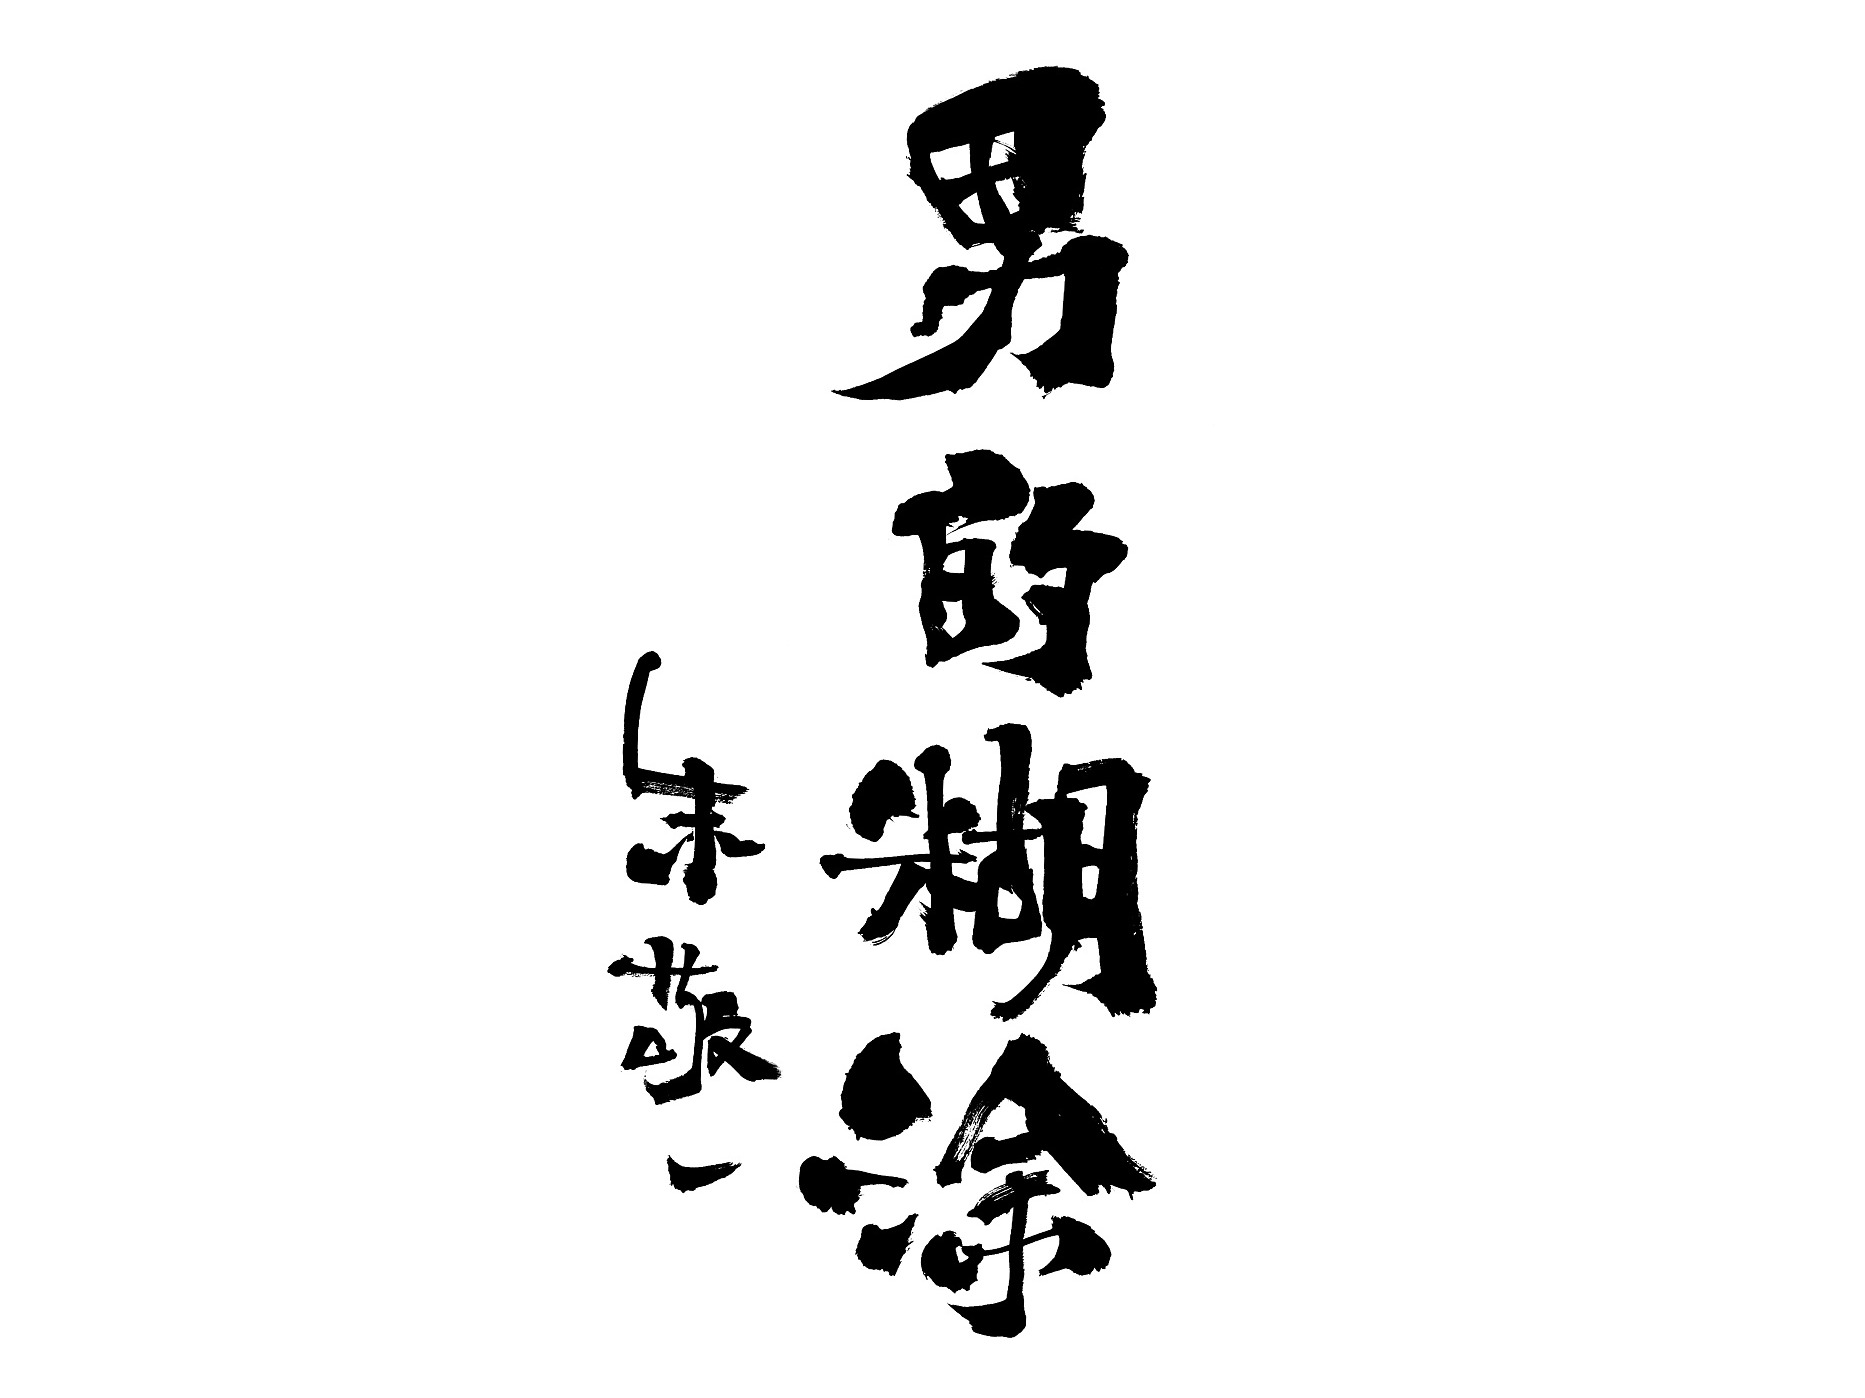 男的糊涂
朱敬一